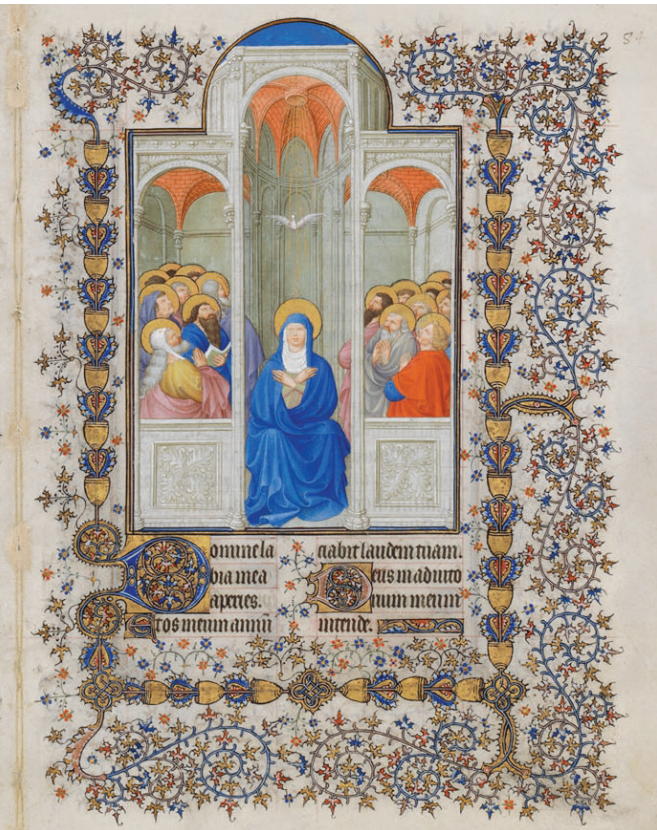 Domine la
bia mea
aperies.
Et os meum annū
ciabit laudem tuam.
Deus in adiuto
rium meum
intende.